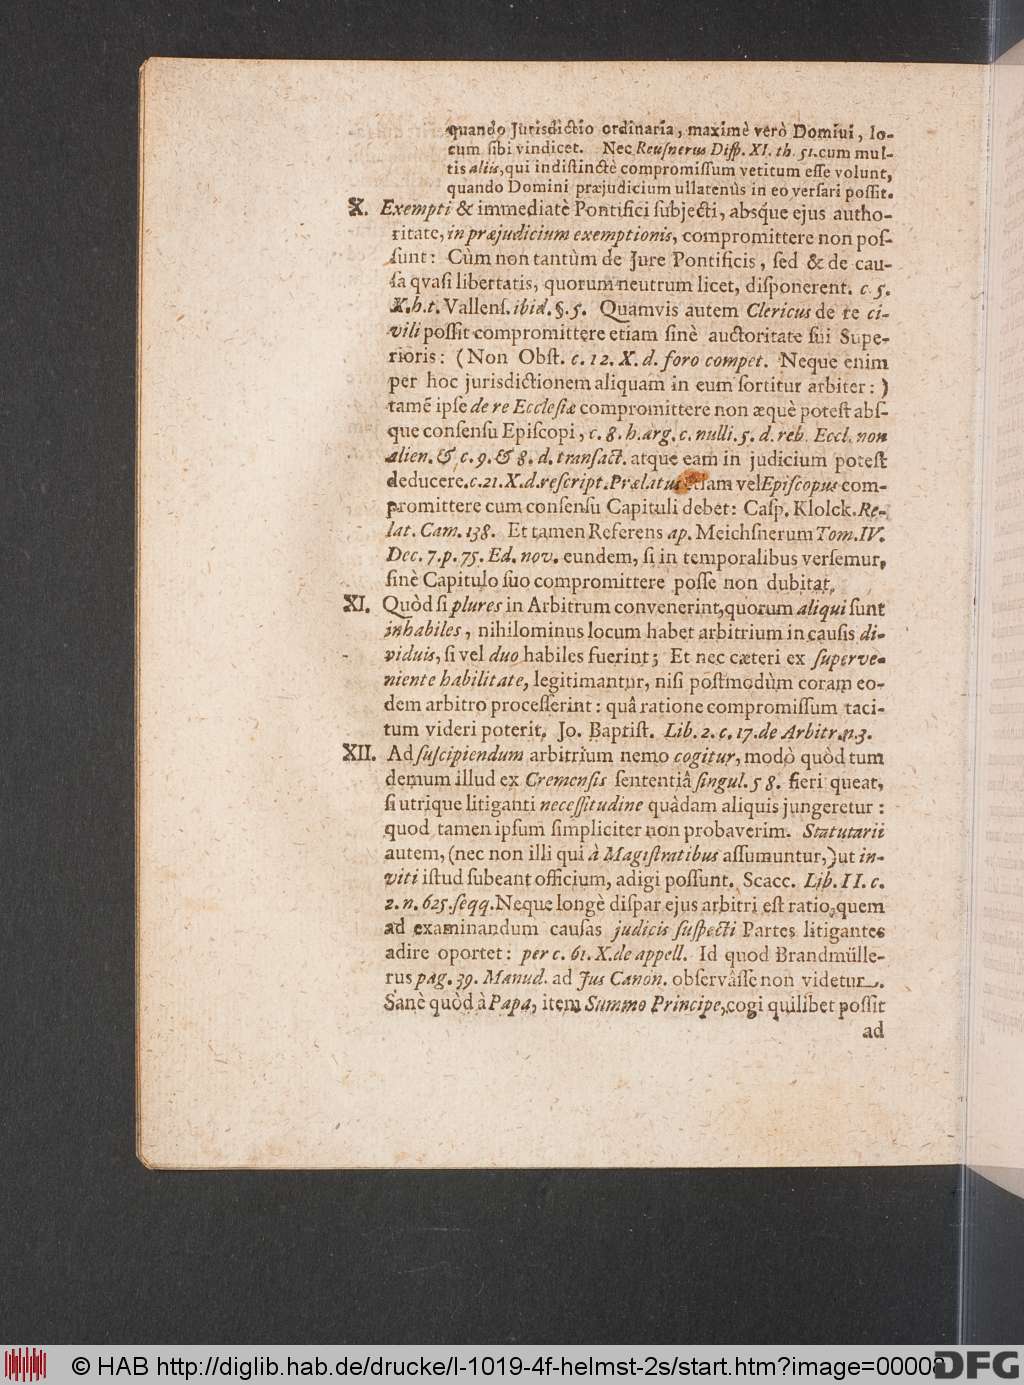 quando Jurisdictio ordinaria, maximè verò Domini, lo-
cum sibi vindicet. Nec Reusnerus Disp. XI. th. 51. cum mul-
tis aliis, qui indistinctè compromissum vetitum esse volunt,
quando Domini præjudicium ullatenùs in eo versari possit.
X. Exempti & immediatè Pontifici subjecti, absq́ue ejus autho-
ritate, in præjudicium exemptionis, compromittere non pos-
sunt: Cùm non tantùm de Jure Pontificis, sed & de cau-
sa qvasi libertatis, quorum neutrum licet, disponerent. c. 5.
X. h. t. Vallens. ibid. §. 5. Quamvis autem Clericus de re ci-
vili possit compromittere etiam sinè auctoritate sui Supe-
rioris: (Non Obst. c. 12. X. d. foro compet. Neque enim
per hoc jurisdictionem aliquam in eum sortitur arbiter: )
tamẽ ipse de re Ecclesiæ compromittere non æquè potest abs-
que consensu Episcopi, c. 8. h. arg. c. nulli. 5. d. reb. Eccl. non
alien. & c. 9. & 8. d. transact. atque eam in judicium potest
deducere. c. 21. X. d. rescript. Prælatus etiam vel Episcopus com-
promittere cum consensu Capituli debet: Casp. Klolck. Re-
lat. Cam. 138. Et tamen Referens ap. Meichsnerum Tom. IV.
Dec. 7. p. 75. Ed. nov. eundem, si in temporalibus versemur,
sinè Capitulo suo compromittere posse non dubitat.
XI. Quòd si plures in Arbitrum convenerint, quorum aliqui sunt
inhabiles, nihilominus locum habet arbitrium in causis di-
viduis, si vel duo habiles fuerint; Et nec cæteri ex superve-
niente habilitate, legitimantur, nisi postmodùm coram eo-
dem arbitro processerint: quâ ratione compromissum taci-
tum videri poterit. Jo. Baptist. Lib. 2. c. 17. de Arbitr. n. 3.
XII. Ad suscipiendum arbitrium nemo cogitur, modò quòd tum
demum illud ex Cremensis sententiâ singul. 58. fieri queat,
si utrique litiganti necessitudine quâdam aliquis jungeretur:
quod tamen ipsum simpliciter non probaverim. Statutarii
autem, (nec non illi qui à Magistratibus assumuntur,) ut in-
viti istud subeant officium, adigi possunt. Scacc. Lib. II. c.
2. n. 625. seqq. Neque longè dispar ejus arbitri est ratio, quem
ad examinandum causas judicis suspecti Partes litigantes
adire oportet: per c. 61. X. de appell. Id quod Brandmülle-
rus pag. 39. Manud. ad Jus Canon. observâsse non videtur.
Sanè quòd à Papa, item Summo Principe, cogi quilibet possit
ad
© HAB http://diglib.hab.de/drucke/l-1019-4f-helmst-2s/start.htm?image=00008
DFG